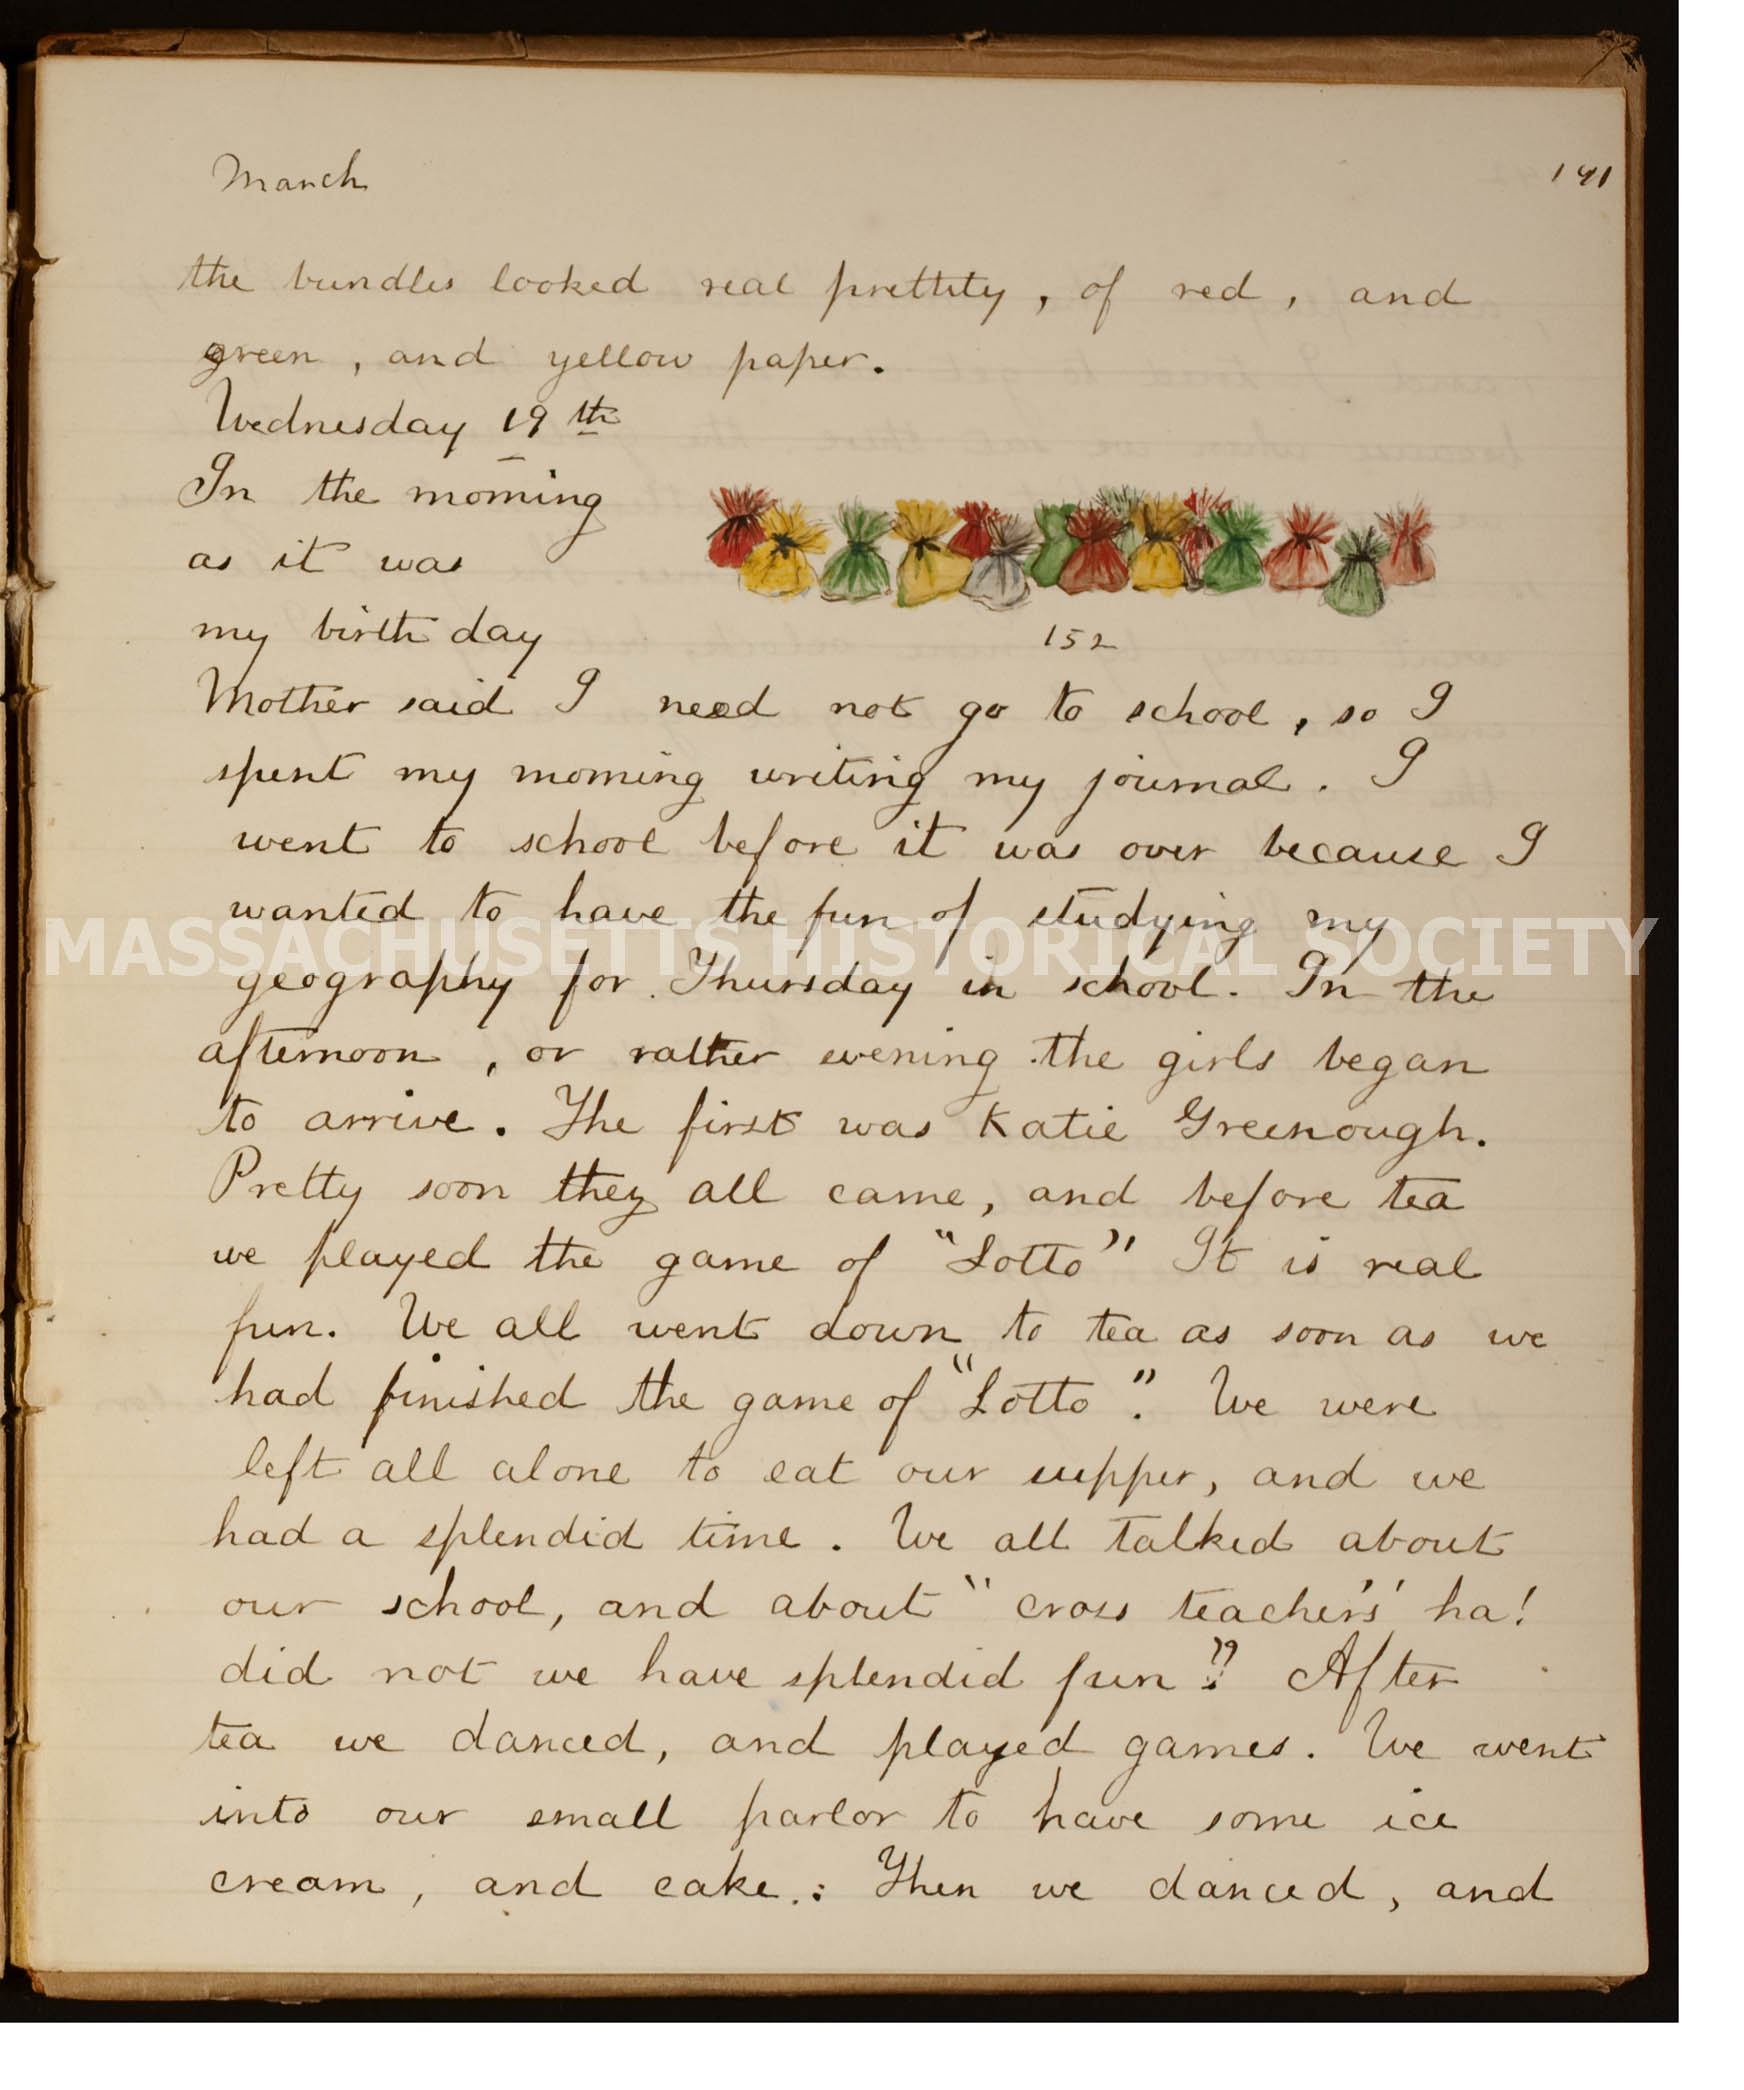 March 191
the bundles looked real prettity, of red, and
green, and yellow paper.
Wednesday 19th
In the morning
as it was
my birth day
152
Mother said I need not go to school, so I
spent my morning writing my journal. I
went to school before it was over because I
wanted to have the fun of studying my
MASSACHUSETTS HISTORICAL SOCIETY
geography for Thursday in school. In the
afternoon, or rather evening the girls began
to arrive. The first was Katie Greenough.
Pretty soon they all came, and before tea
we played the game of "Lotto" It is real
fun. We all went down to tea as soon as we
had finished the game of "Lotto". We were
left all alone to eat our supper, and we
had a splendid time. We all talked about
our school, and about "cross teachers' ha!
did not we have splendid fun?" After
tea we danced, and played games. We went
into our small parlor to have some ice
cream, and cake.: Then we danced, and